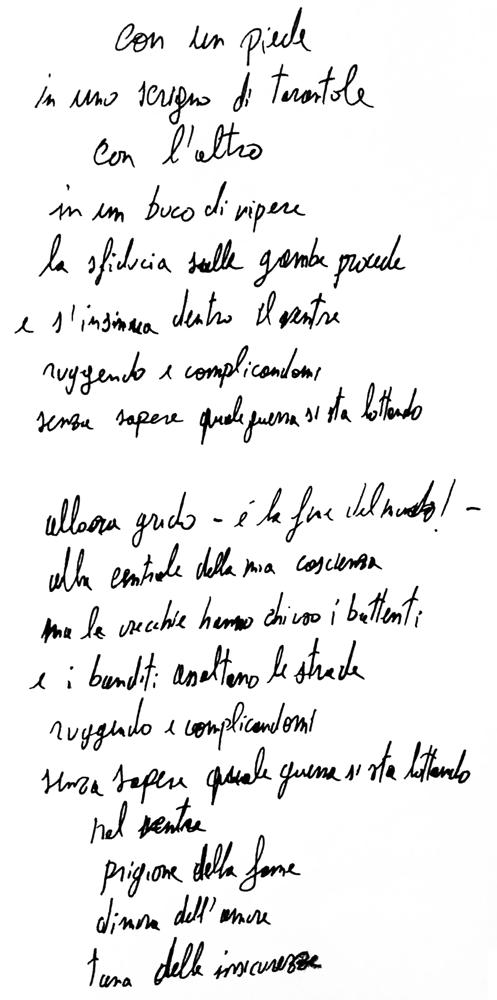 con un piede
in uno scrigno di tarantole
con l'altro
in un buco di vipere
la sfiducia sulle gambe procede
e s'insinua dentro il ventre
ruggendo e complicandomi
senza sapere quale guerra si sta lottando
allora grido - é la fine del mondo! -
alla centrale della mia coscienza
ma le orecchie hanno chiuso i battenti
e i banditi assaltano le strade
ruggendo e complicandomi
senza sapere quale guerra si sta lottando
nel ventre
prigione della fame
dimora dell'amore
tana delle insicurezze